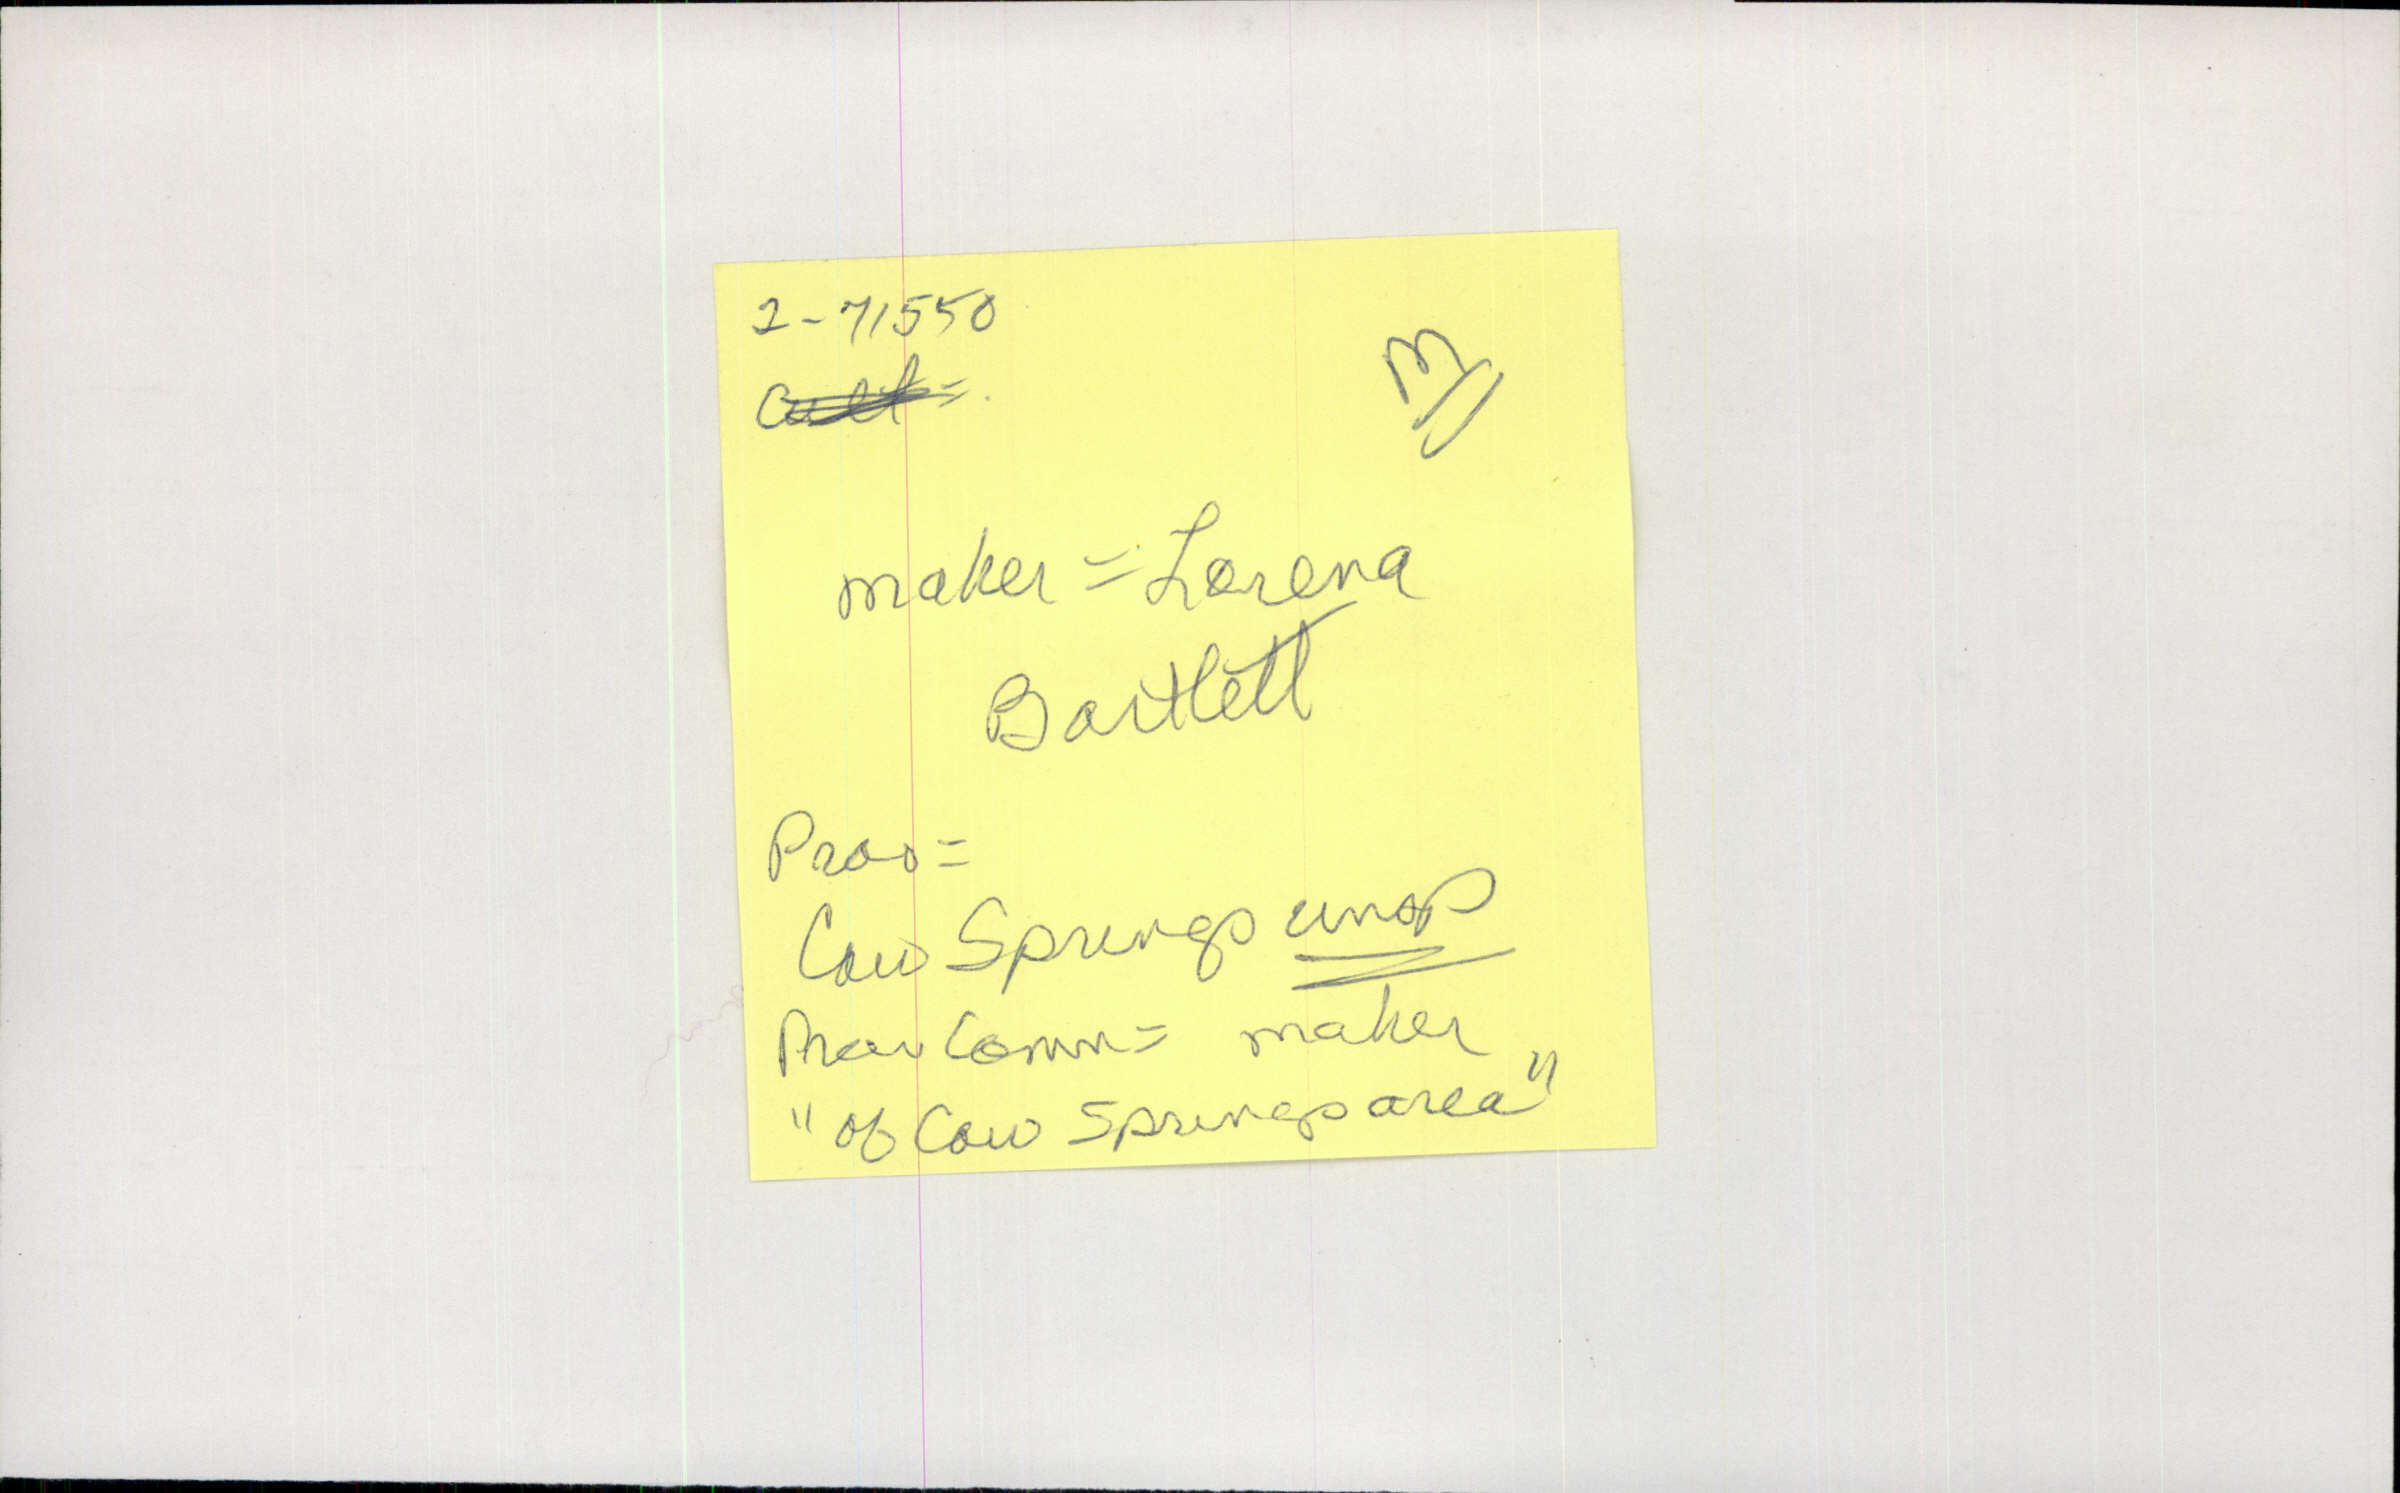 2-71550
Cult =
maker = Lorena
Bartlett
Prov =
Cow Springs
Prov Comm = maker
"of Cow Springs area"